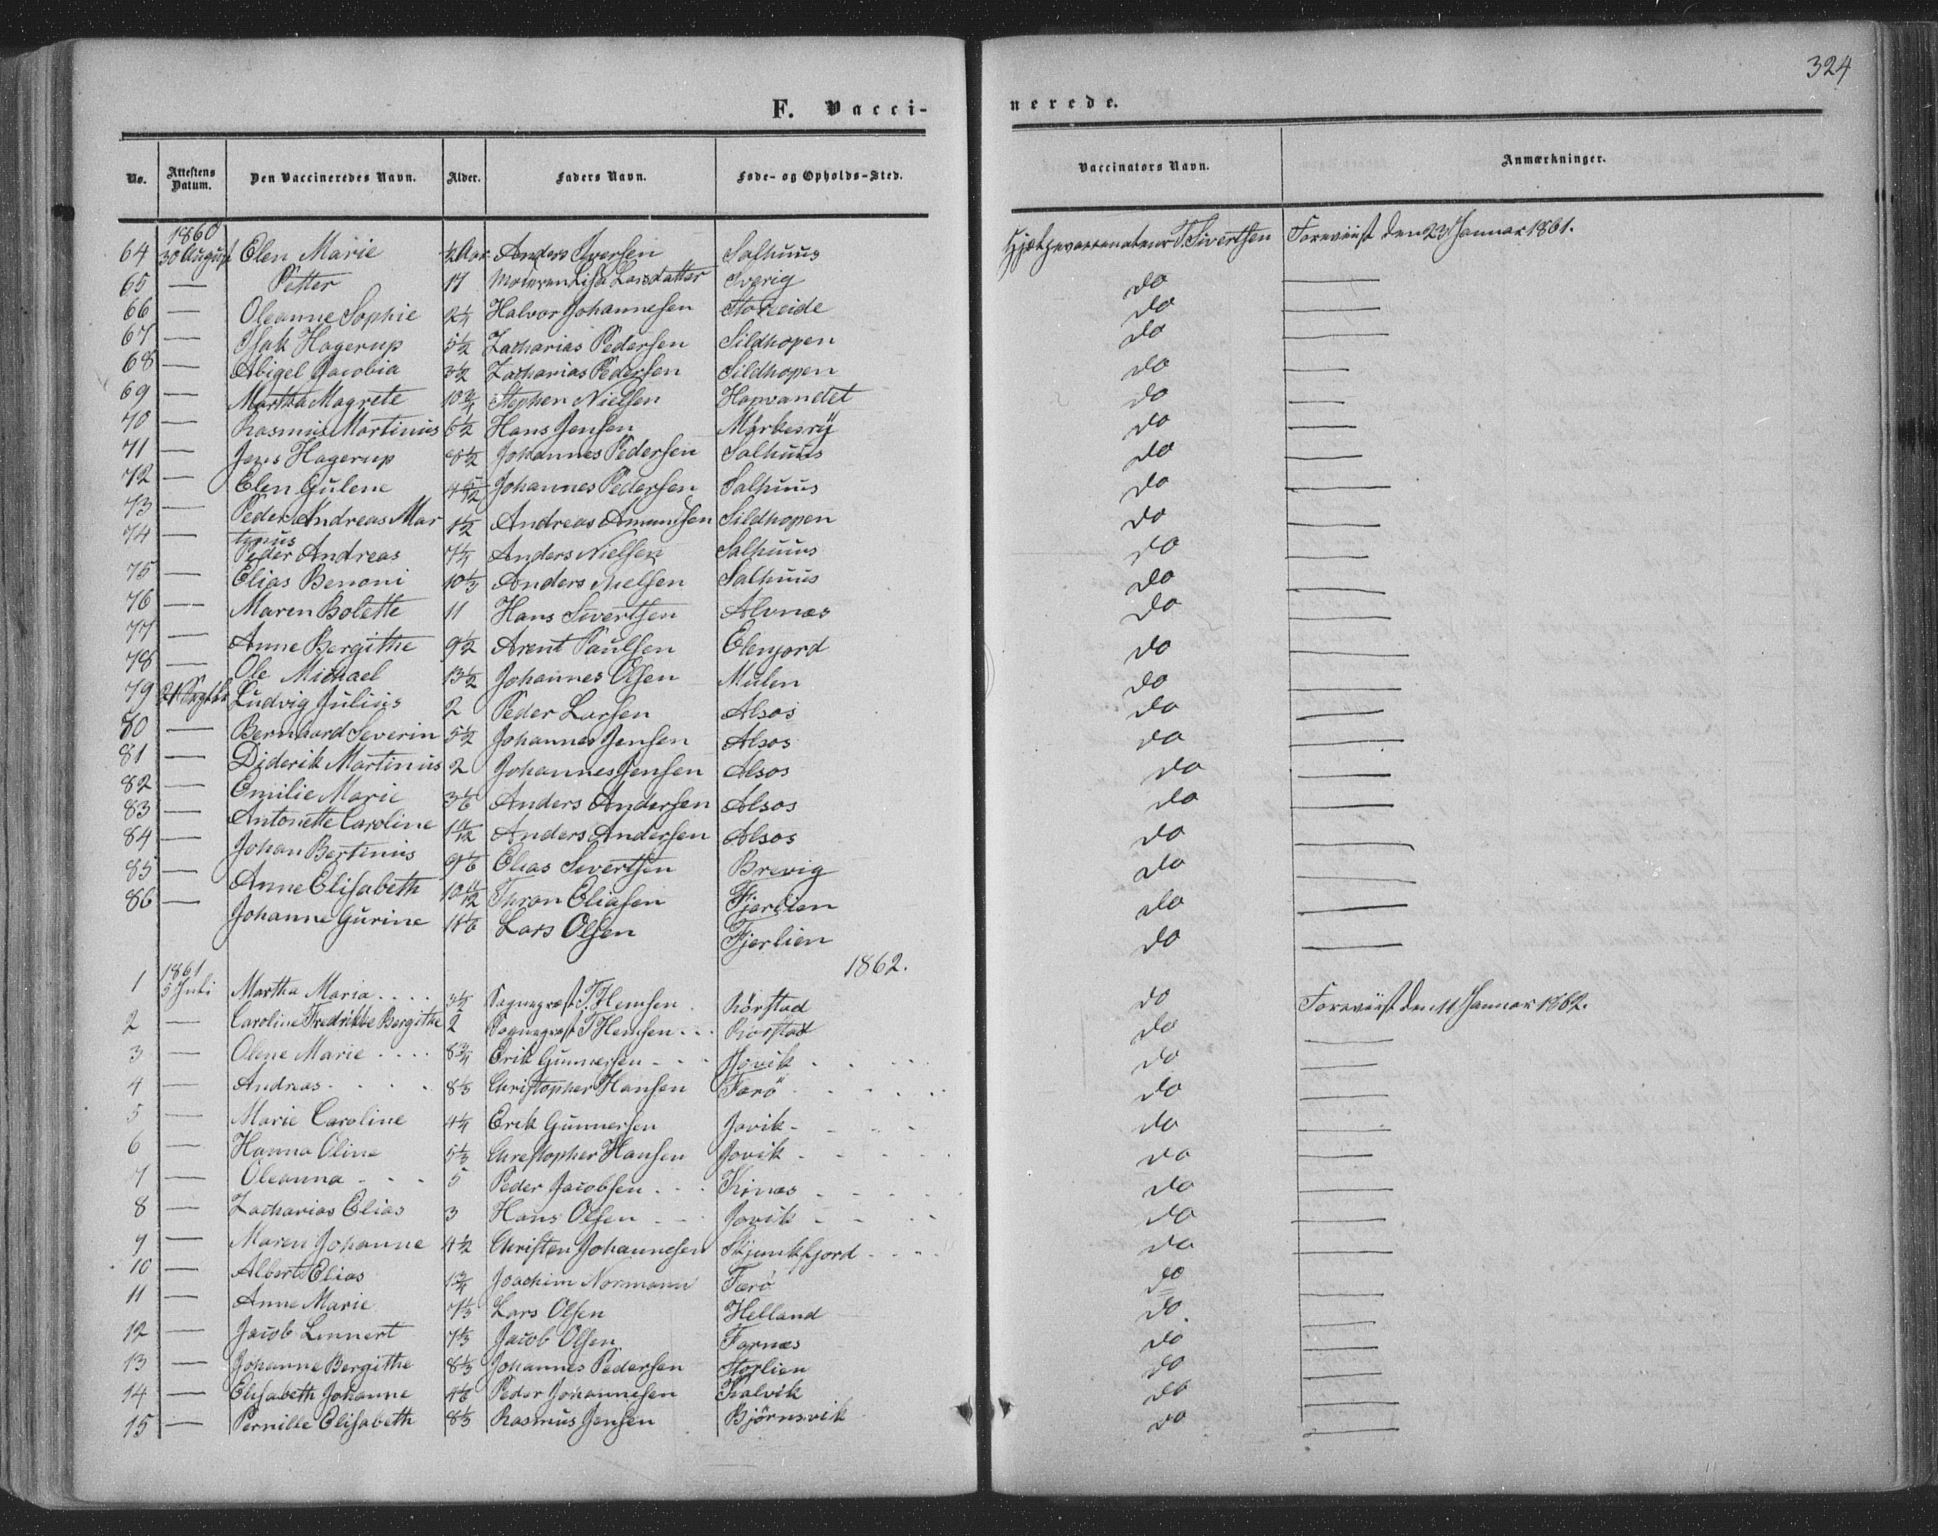 324
F. Vaccinerede.
No. Attestens Datum. Den Vaccineredes Navn. Alder. Faders Navn. Føde- og Opholds-Sted. Vaccinators Navn. Anmærkninger.
1860
64 30 August Elen Marie ½ Aar Anders Iversen Salhuus T. Sivertsen Foreviist den 23 Januar 1861.
65 — Petter 17 Moderen Lisa Larsdatter Sverig do —
66 — Oleanne Sophie 2¼ Halvor Johannesen Storeide do —
67 — Isak Hagerup 5½ Zacharias Pedersen Sildhopen do —
68 — Abigel Jacobia 3½ Zacharias Pedersen Sildhopen do —
69 — Martha Magrete 10¾ Stephen Nielsen Hopvandet do —
70 — Rasmus Martinus 6½ Hans Jensen do —
71 — Jens Hagerup 8½ Johannes Pedersen Salhuus do —
72 — Elen Gulene 4 5/12 Johannes Pedersen Salhuus do —
73 — Peder Andreas Martinus 1½ Andreas Amundsen Sildhopen do —
74 — Peder Andreas 7¼ Anders Nielsen Salhuus do —
75 — Elias Benoni 10⅓ Anders Nielsen Salhuus do —
76 — Maren Bolette 11 Hans Sivertsen Alvnæs do —
77 — Anne Bergithe 9½ Arent Paulsen do —
78 — Ole Michael 13½ Johannes Olsen Mulen do —
79 Ludvig Julius 2 Peder Larsen Alsos do —
80 — Bernhard Severin 5½ Johannes Jensen Alsos do —
81 — Diderik Martinius 2 Johannes Jensen Alsos do —
82 — Emilie Marie 3⅙ Anders Andersen Alsos do —
83 — Antonette Caroline 1 11/12 Anders Andersen Alsos do —
84 — Johan Bertinus 9⅙ Elias Sivertsen Brevig do —
85 — Anne Elisabeth 10 11/12 Thron Eliasen Fjerlien do —
86 — Johanne Gurine 11⅙ Lars Olsen Fjerlien do —
1862.
1861
1 5 Juli Martha Maria 3½ T. Hemsen Rørstad do Foreviist den 11 Januar 1862.
2 — Caroline Fredrikke Bergithe 2 T. Hemsen Rørstad do —
3 — Olene Marie 8¾ Erik Gunnersen Jovik do —
4 — Andreas 8⅓ Christopher Hansen Færö do —
5 — Marie Caroline 4¼ Erik Gunnersen Jovik do —
6 — Hanna Oline 5⅓ Christopher Hansen Jovik do —
7 — Oleanna 5 Peder Jacobsen do —
8 — Zacharias Elias 3 Hans Olsen Jovik do —
9 — Maren Johanne 4½ Christen Johannesen Skjunkfjord do —
10 — Albert Elias 1¾ Joachim Normann Færö do —
11 — Anne Marie 7⅓ Lars Olsen Helland do —
12 — Jacob Lennert 7⅓ Jacob Olsen Farnæs do —
13 — Johanne Bergithe 8⅓ Johannes Pedersen Storlien do —
14 — Elisabeth Johanne 4⅙ Peder Johannesen Kalvik do —
15 — Pernille Elisabeth 8⅓ Rasmus Jensen Bjørnsvik do —